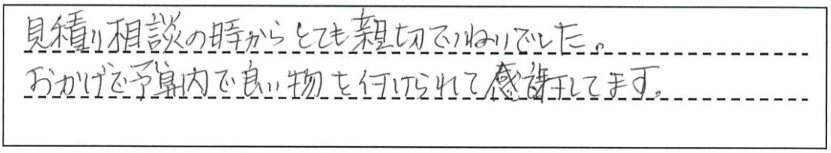 見積り相談の時からとても親切ていねいでした。
おかげで予算内で良い物を付けられて感謝してます。